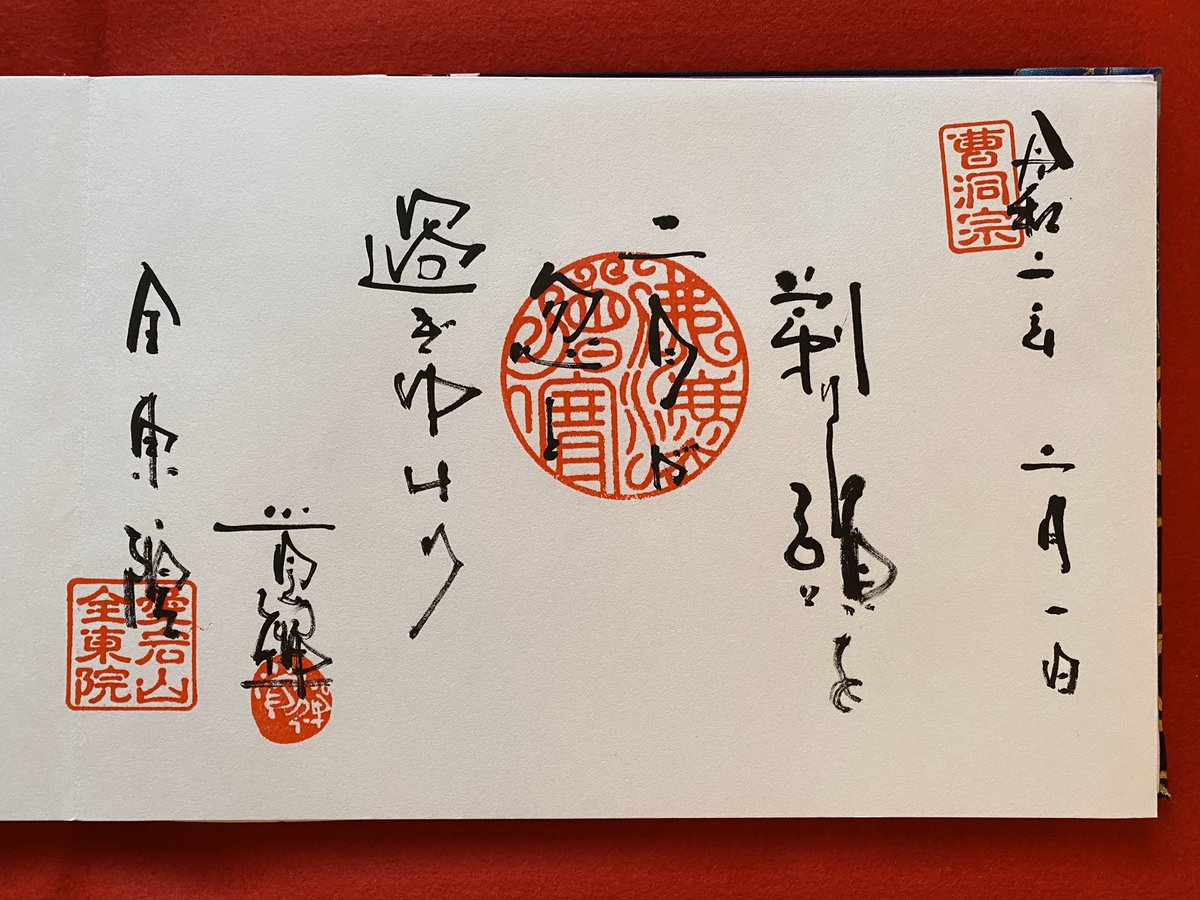 曹洞宗
令和二年 二月一日
剃り頭を
二月が
忽と
過ぎゆけり
佛法僧寶
全東院
全東院